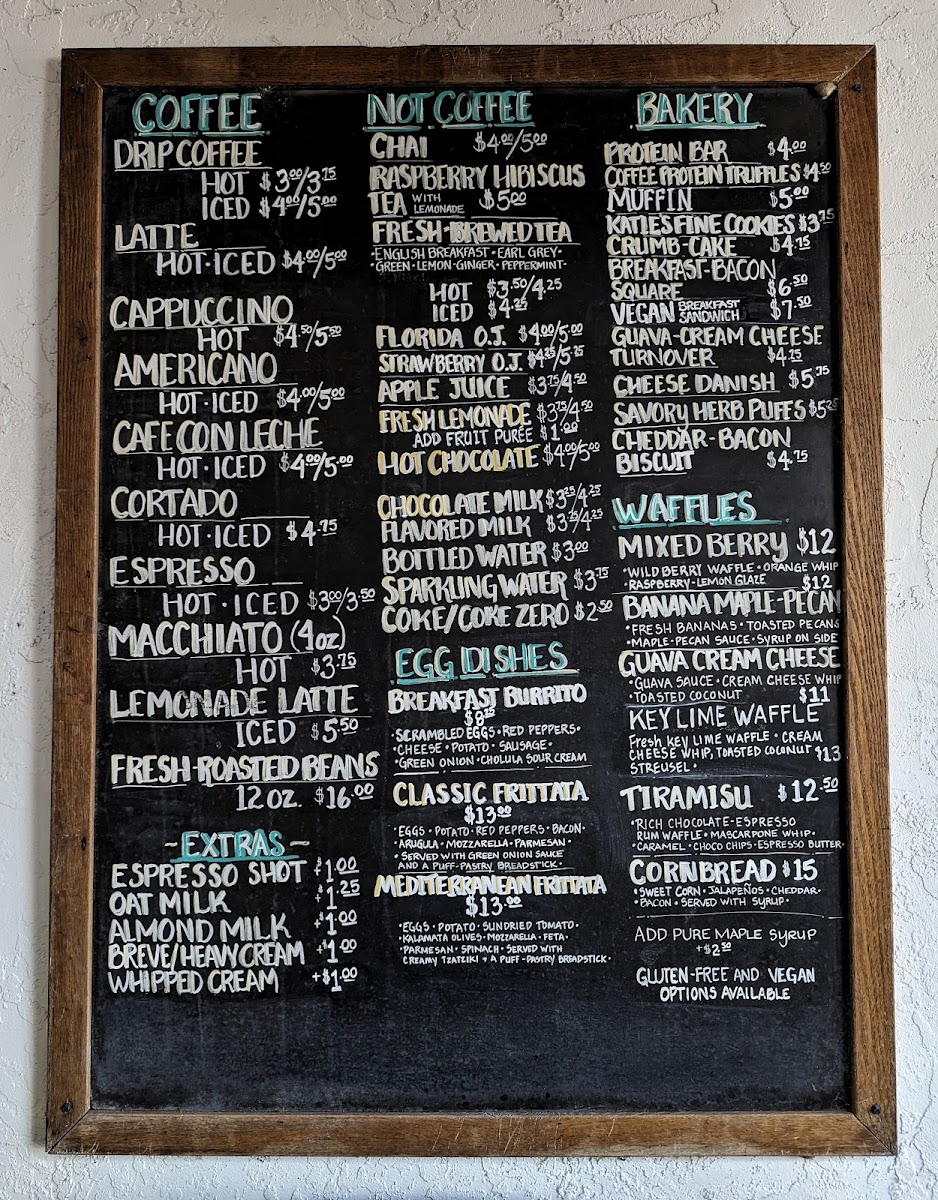 COFFEE
DRIP COFFEE
HOT $3.00/3.75
ICED $4.00/5.00
LATTE
HOT·ICED $4.00/5.00
CAPPUCCINO
HOT $4.50/5.50
AMERICANO
HOT·ICED $4.00/5.00
CAFE CON LECHE
HOT·ICED $4.00/5.00
CORTADO
HOT·ICED $4.75
ESPRESSO
HOT·ICED $3.00/3.50
MACCHIATO (4oz)
HOT $3.75
LEMONADE LATTE
ICED $5.50
FRESH-ROASTED BEANS
12 OZ. $16.00
~EXTRAS~
ESPRESSO SHOT +1.00
OAT MILK +1.25
ALMOND MILK +$1.00
BREVE/HEAVY CREAM +$1.00
WHIPPED CREAM +$1.00
NOT COFFEE
CHAI $4.00/5.00
RASPBERRY HIBISCUS
TEA WITH LEMONADE $5.00
FRESH-BREWED TEA
·ENGLISH BREAKFAST·EARL GREY·
·GREEN·LEMON-GINGER·PEPPERMINT·
HOT $3.50/4.25
ICED $4.25
FLORIDA O.J. $4.00/5.00
STRAWBERRY O.J. $4.25/5.25
APPLE JUICE $3.75/4.50
FRESH LEMONADE $3.75/4.50
ADD FRUIT PURÉE $1.00
HOT CHOCOLATE $4.00/5.00
CHOCOLATE MILK $3.25/4.25
FLAVORED MILK $3.25/4.25
BOTTLED WATER $3.00
SPARKLING WATER $3.75
COKE/COKE ZERO $2.50
EGG DISHES
BREAKFAST BURRITO
·SCRAMBLED EGGS·RED PEPPERS·
·CHEESE·POTATO·SAUSAGE·
·GREEN ONION·CHOLULA SOUR CREAM
CLASSIC FRITTATA
$13.00
·EGGS·POTATO·RED PEPPERS·BACON·
ARUGULA·MOZZARELLA·PARMESAN·
·SERVED WITH GREEN ONION SAUCE
AND A PUFF-PASTRY BREADSTICK·
MEDITERRANEAN FRITTATA
$13.00
·EGGS·POTATO·SUNDRIED TOMATO·
KALAMATA OLIVES·MOZZARELLA·FETA·
·PARMESAN·SPINACH·SERVED WITH
CREAMY TZATZIKI + A PUFF-PASTRY BREADSTICK·
BAKERY
PROTEIN BAR $4.00
COFFEE PROTEIN TRUFFLES $4.50
MUFFIN $5.00
KATIE'S FINE COOKIES $3.75
CRUMB-CAKE $4.75
BREAKFAST-BACON
SQUARE $6.50
VEGAN BREAKFAST SANDWICH $7.50
GUAVA-CREAM CHEESE
TURNOVER $4.75
CHEESE DANISH $5.75
SAVORY HERB PUFFS $5.25
CHEDDAR-BACON
BISCUIT $4.75
WAFFLES
MIXED BERRY $12
·WILD BERRY WAFFLE·ORANGE WHIP
·RASPBERRY-LEMON GLAZE
$12
BANANA MAPLE-PECAN
·FRESH BANANAS·TOASTED PECANS
·MAPLE-PECAN SAUCE·SYRUP ON SIDE
GUAVA CREAM CHEESE
·GUAVA SAUCE·CREAM CHEESE WHIP
·TOASTED COCONUT $11
KEY LIME WAFFLE
Fresh KEY LIME WAFFLE·CREAM
CHEESE WHIP, TOASTED COCONUT $13
STREUSEL·
TIRAMISU $12.50
·RICH CHOCOLATE-ESPRESSO
RUM WAFFLE·MASCARPONE WHIP·
·CARAMEL·CHOCO CHIPS·ESPRESSO BUTTER·
CORNBREAD $15
·SWEET CORN·JALAPEÑOS·CHEDDAR·
BACON·SERVED WITH SYRUP·
ADD PURE MAPLE SYRUP
+$2.50
GLUTEN-FREE AND VEGAN
OPTIONS AVAILABLE